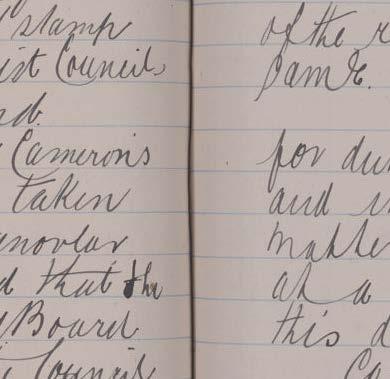 stamp
ist Council
nd.
Cameron's
taken
d that the
Board
Council
of the r
same.
for du
and i
matte
at a
this d
Co